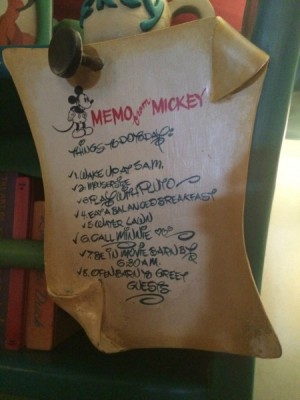 MEMO from MICKEY
THINGS TO DO TODAY:
✓1. WAKE UP AT 5 A.M.
✓2. MOUSERSIZE
✓3. PLAY WITH PLUTO
✓4. EAT A BALANCED BREAKFAST
✓5. WATER LAWN
✓6. CALL MINNIE
✓7. BE IN MOVIE BARN BY
A.M.
✓8. OPEN BARN TO GREET
GUESTS